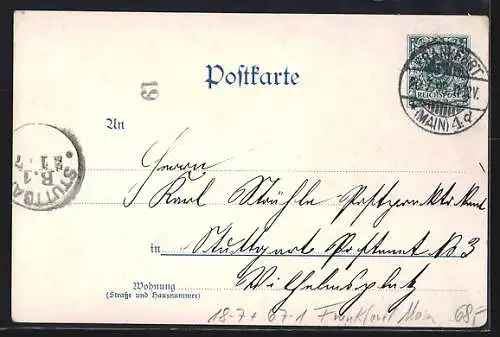 Postkarte
FRANKFURT
REICHSPOST
(MAIN) 1 d
19
An
Herrn
Karl Stähle Postpraktikant
in Stuttgart Postamt No 3
Wilhelmsplatz
STUTTGA
B.1
Wohnung
(Straße und Hausnummer)
18-7 + 67-1 Frankfurt Main 68,-